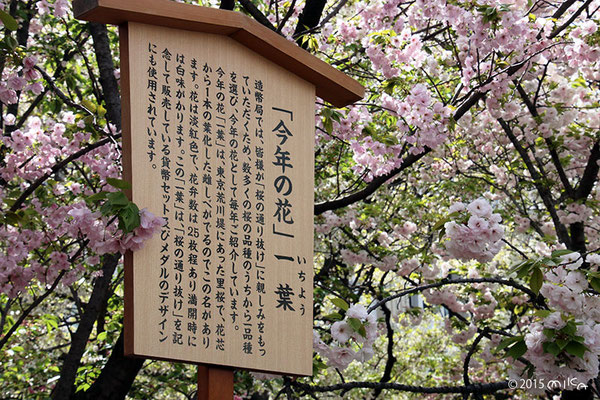 「今年の花」一葉
いちよう
造幣局では、皆様が「桜の通り抜け」に親しみをもっ
ていただくため、数多くの桜の品種のうちから一品種
を選び、今年の花として毎年ご紹介しています。
今年の花「一葉」は、東京荒川堤にあった里桜で、花芯
から1本の葉化した雌しべがでるのでこの名があり
ます。花は淡紅色で、花弁数は25枚程あり満開時に
は白味がかります。この「一葉」は、「桜の通り抜け」を記
念して販売している貨幣セットのメダルのデザイン
にも使用されています。
©2015 mika